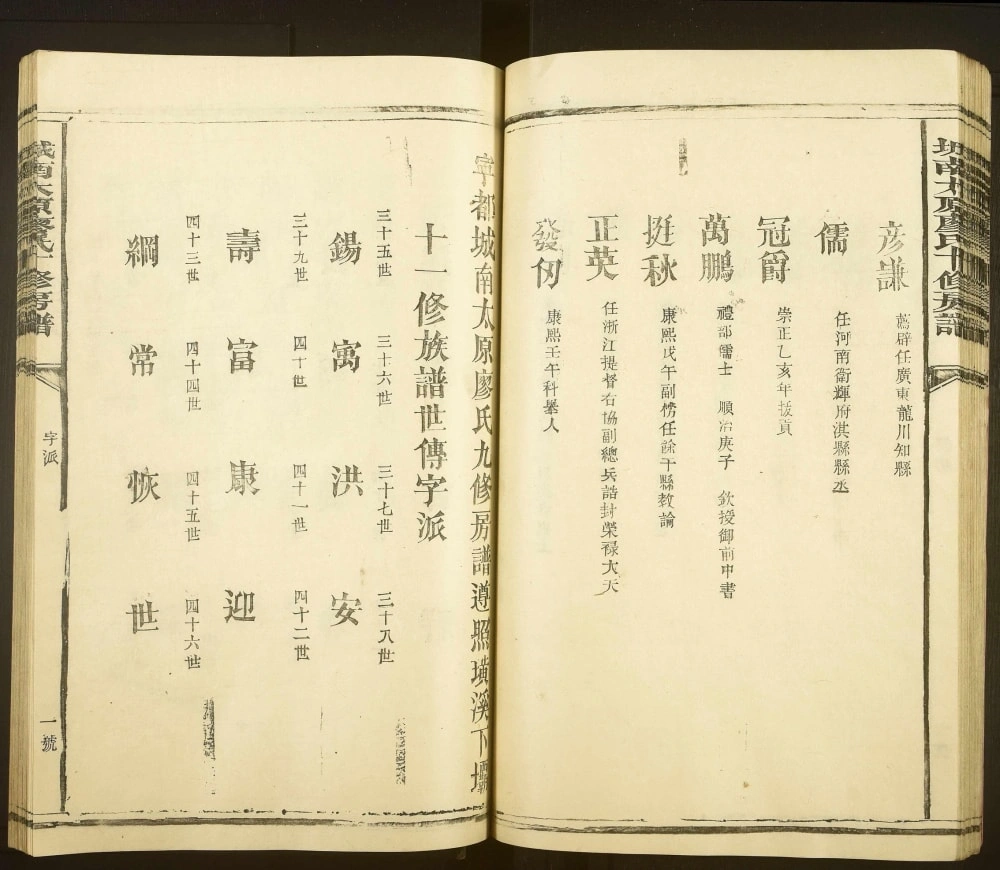 城南太原廖氏十修房譜
彦謙 薦辟任廣東龍川知縣
儒 任河南衛輝府淇縣縣丞
冠爵 崇正乙亥年拔貢
萬鵬 禮部儒士 順治庚子 欽授御前中書
挺秋 康熙戊午副榜任餘干縣教諭
正英 任浙江提督右協副總兵誥封榮禄大夫
發仞 康熙壬午科舉人
寧都城南太原廖氏九修房譜遵照璜溪下壩
十一修族譜世傳字派
三十五世 三十六世 三十七世 三十八世
錫 寓 洪 安
三十九世 四十世 四十一世 四十二世
壽 富 康 迎
四十三世 四十四世 四十五世 四十六世
綱 常 恢 世
城南太原廖氏十修房譜
字派
一號